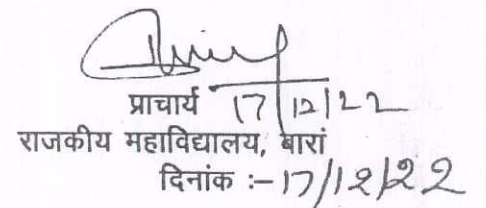 प्राचार्य 17/12/22
राजकीय महाविद्यालय, बारां
दिनांक :- 17/12/22